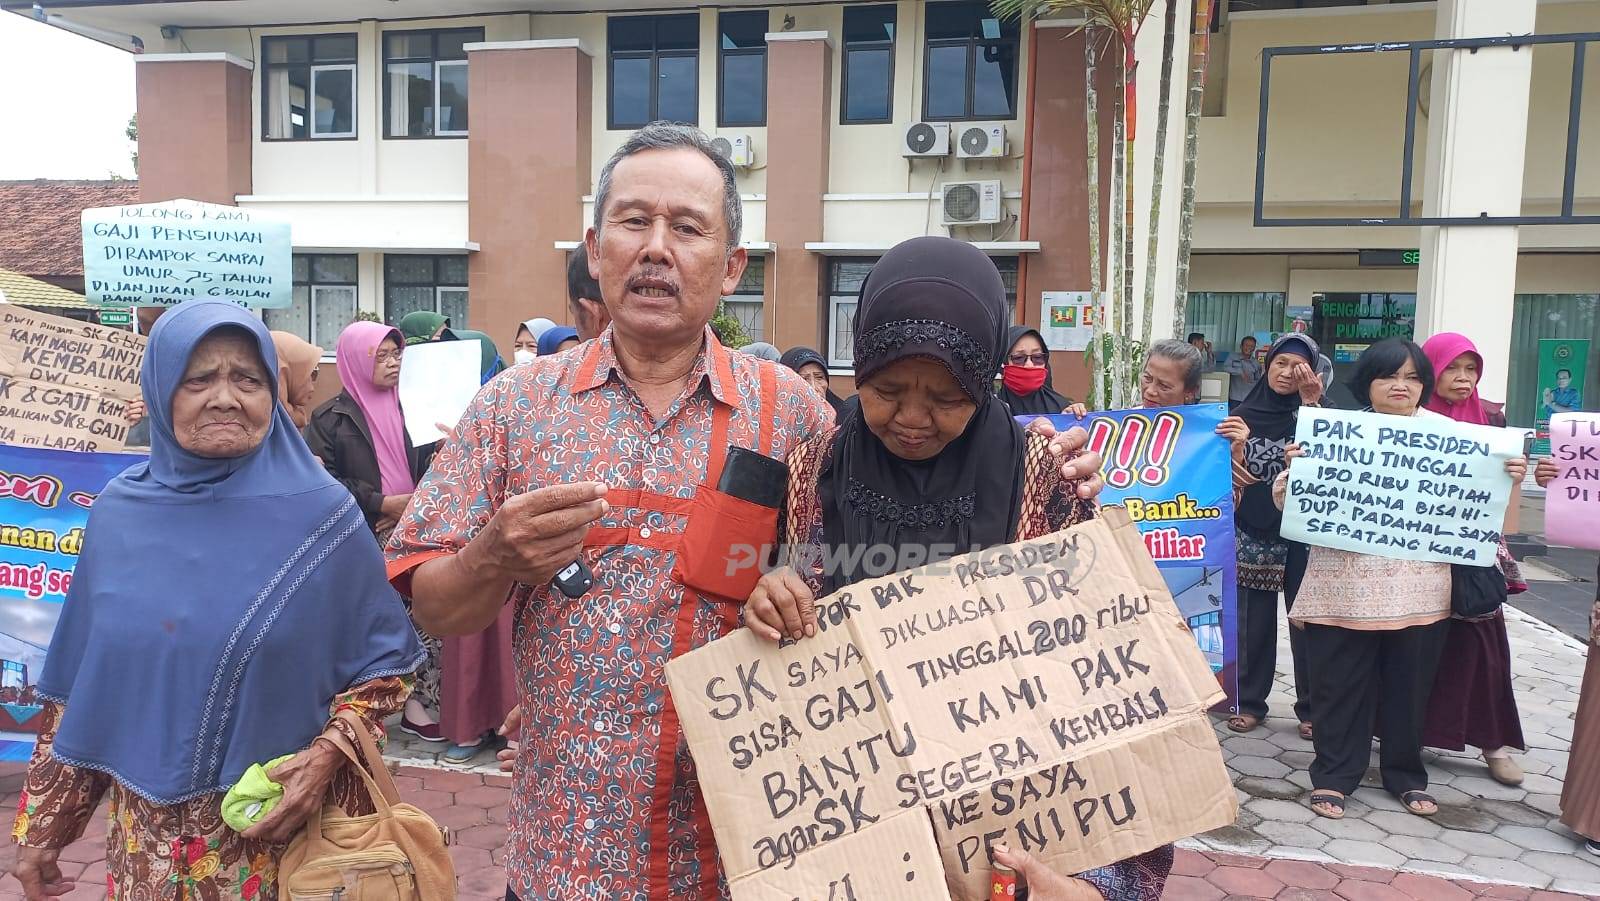 TOLONG KAMI
GAJI PENSIUNAN
DIRAMPOK SAMPAI
UMUR 75 TAHUN
DIJANJIKAN 6 BULAN
BANK
DWI PINJAM SK 6 bln
KAMI NAGIH JANJI
KEMBALIKAN
DWI....
K & GAJI KAMI
BALIKAN SK & GAJI
ini LAPAR
MASJID
PENGADILAN
PURWORE
!!!
Bank...
Miliar
PAK PRESIDEN
GAJIKU TINGGAL
150 RIBU RUPIAH
BAGAIMANA BISA HI-
DUP. PADAHAL SAYA
SEBATANG KARA
SK
AN
DI
PURWOREJO24
PAK PRESIDEN
SK SAYA DIKUASAI DR
SISA GAJI TINGGAL 200 ribu
BANTU KAMI PAK
agar SK SEGERA KEMBALI
KE SAYA
: PENIPU